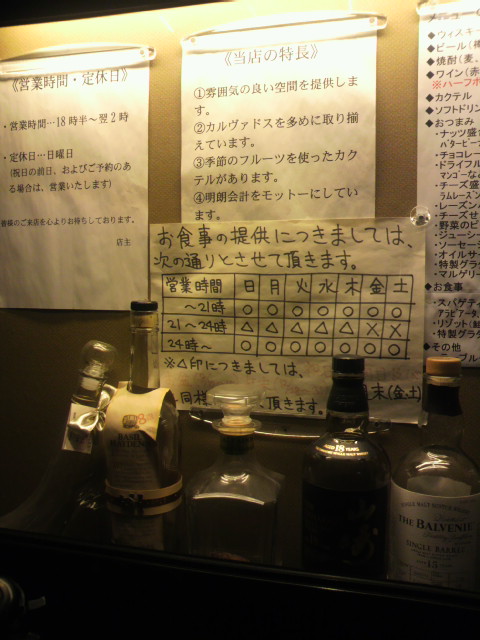 《営業時間・定休日》
・営業時間…18時半～翌2時
・定休日…日曜日
(祝日の前日、およびご予約のあ
る場合は、営業いたします)
皆様のご来店を心よりお待ちしております。
店主
《当店の特長》
①雰囲気の良い空間を提供しま
す。
②カルヴァドスを多めに取り揃
えています。
③季節のフルーツを使ったカク
テルがあります。
④明朗会計をモットーにしてい
ます。
メニュー
◆ウィスキー
◆ビール
◆焼酎(麦、
◆ワイン(赤
※ハーフボ
◆カクテル
◆ソフトドリン
◆おつまみ
・ナッツ盛
バタピー
・チョコレー
・ドライフル
マンゴーな
・チーズ盛
ラムレーズン
・レーズン
・チーズせ
・野菜のピ
・ジューシ
・ソーセー
・オイルサ
・特製グラタ
・マルゲリー
◆お食事
・スパゲティ
アラビアータ
・リゾット
・特製グラタ
◆その他
お食事の提供につきましては、
次の通りとさせて頂きます。
営業時間 日 月 火 水 木 金 土
～21時 ○ ○ ○ ○ ○ ○ ○
21～24時 △ △ △ △ △ × ×
24時～ ○ ○ ○ ○ ○ ○ ○
※△印につきましては、
末(金、土)
同様
頂きます。
BASIL
HAYDEN'S
18
YEARS
THE BALVENIE
SINGLE BARREL
15